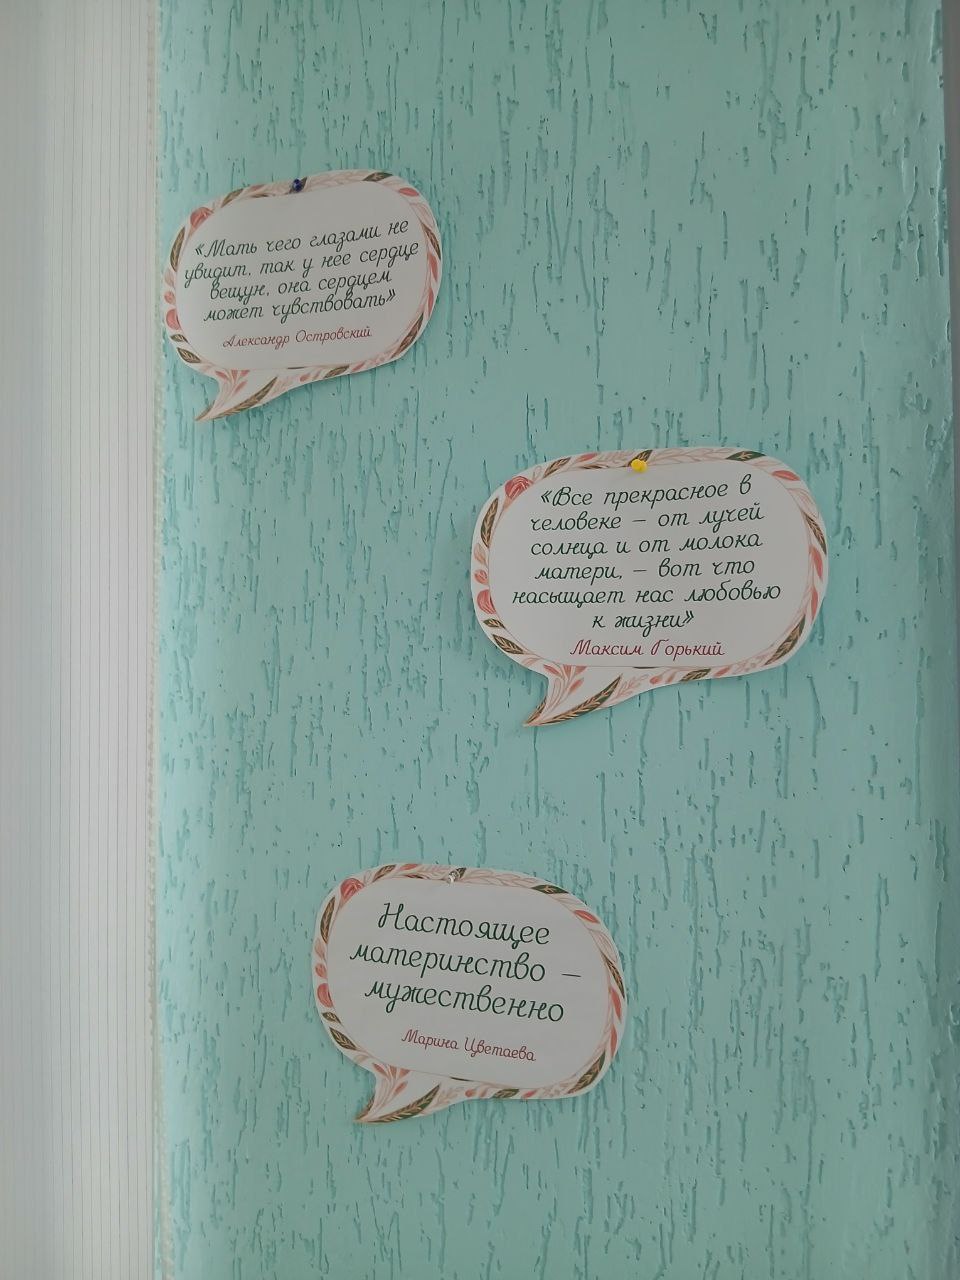 «Мать чего глазами не
увидит, так у нее сердце
вещун, она сердцем
может чувствовать»
Александр Островский
«Все прекрасное в
человеке – от лучей
солнца и от молока
матери, – вот что
насыщает нас любовью
к жизни»
Максим Горький
Настоящее
материнство –
мужественно
Марина Цветаева